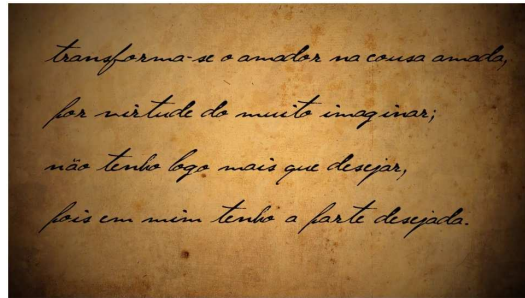 transforma-se o amador na cousa amada,
por virtude do muito imaginar;
não tenho logo mais que desejar,
pois em mim tenho a parte desejada.